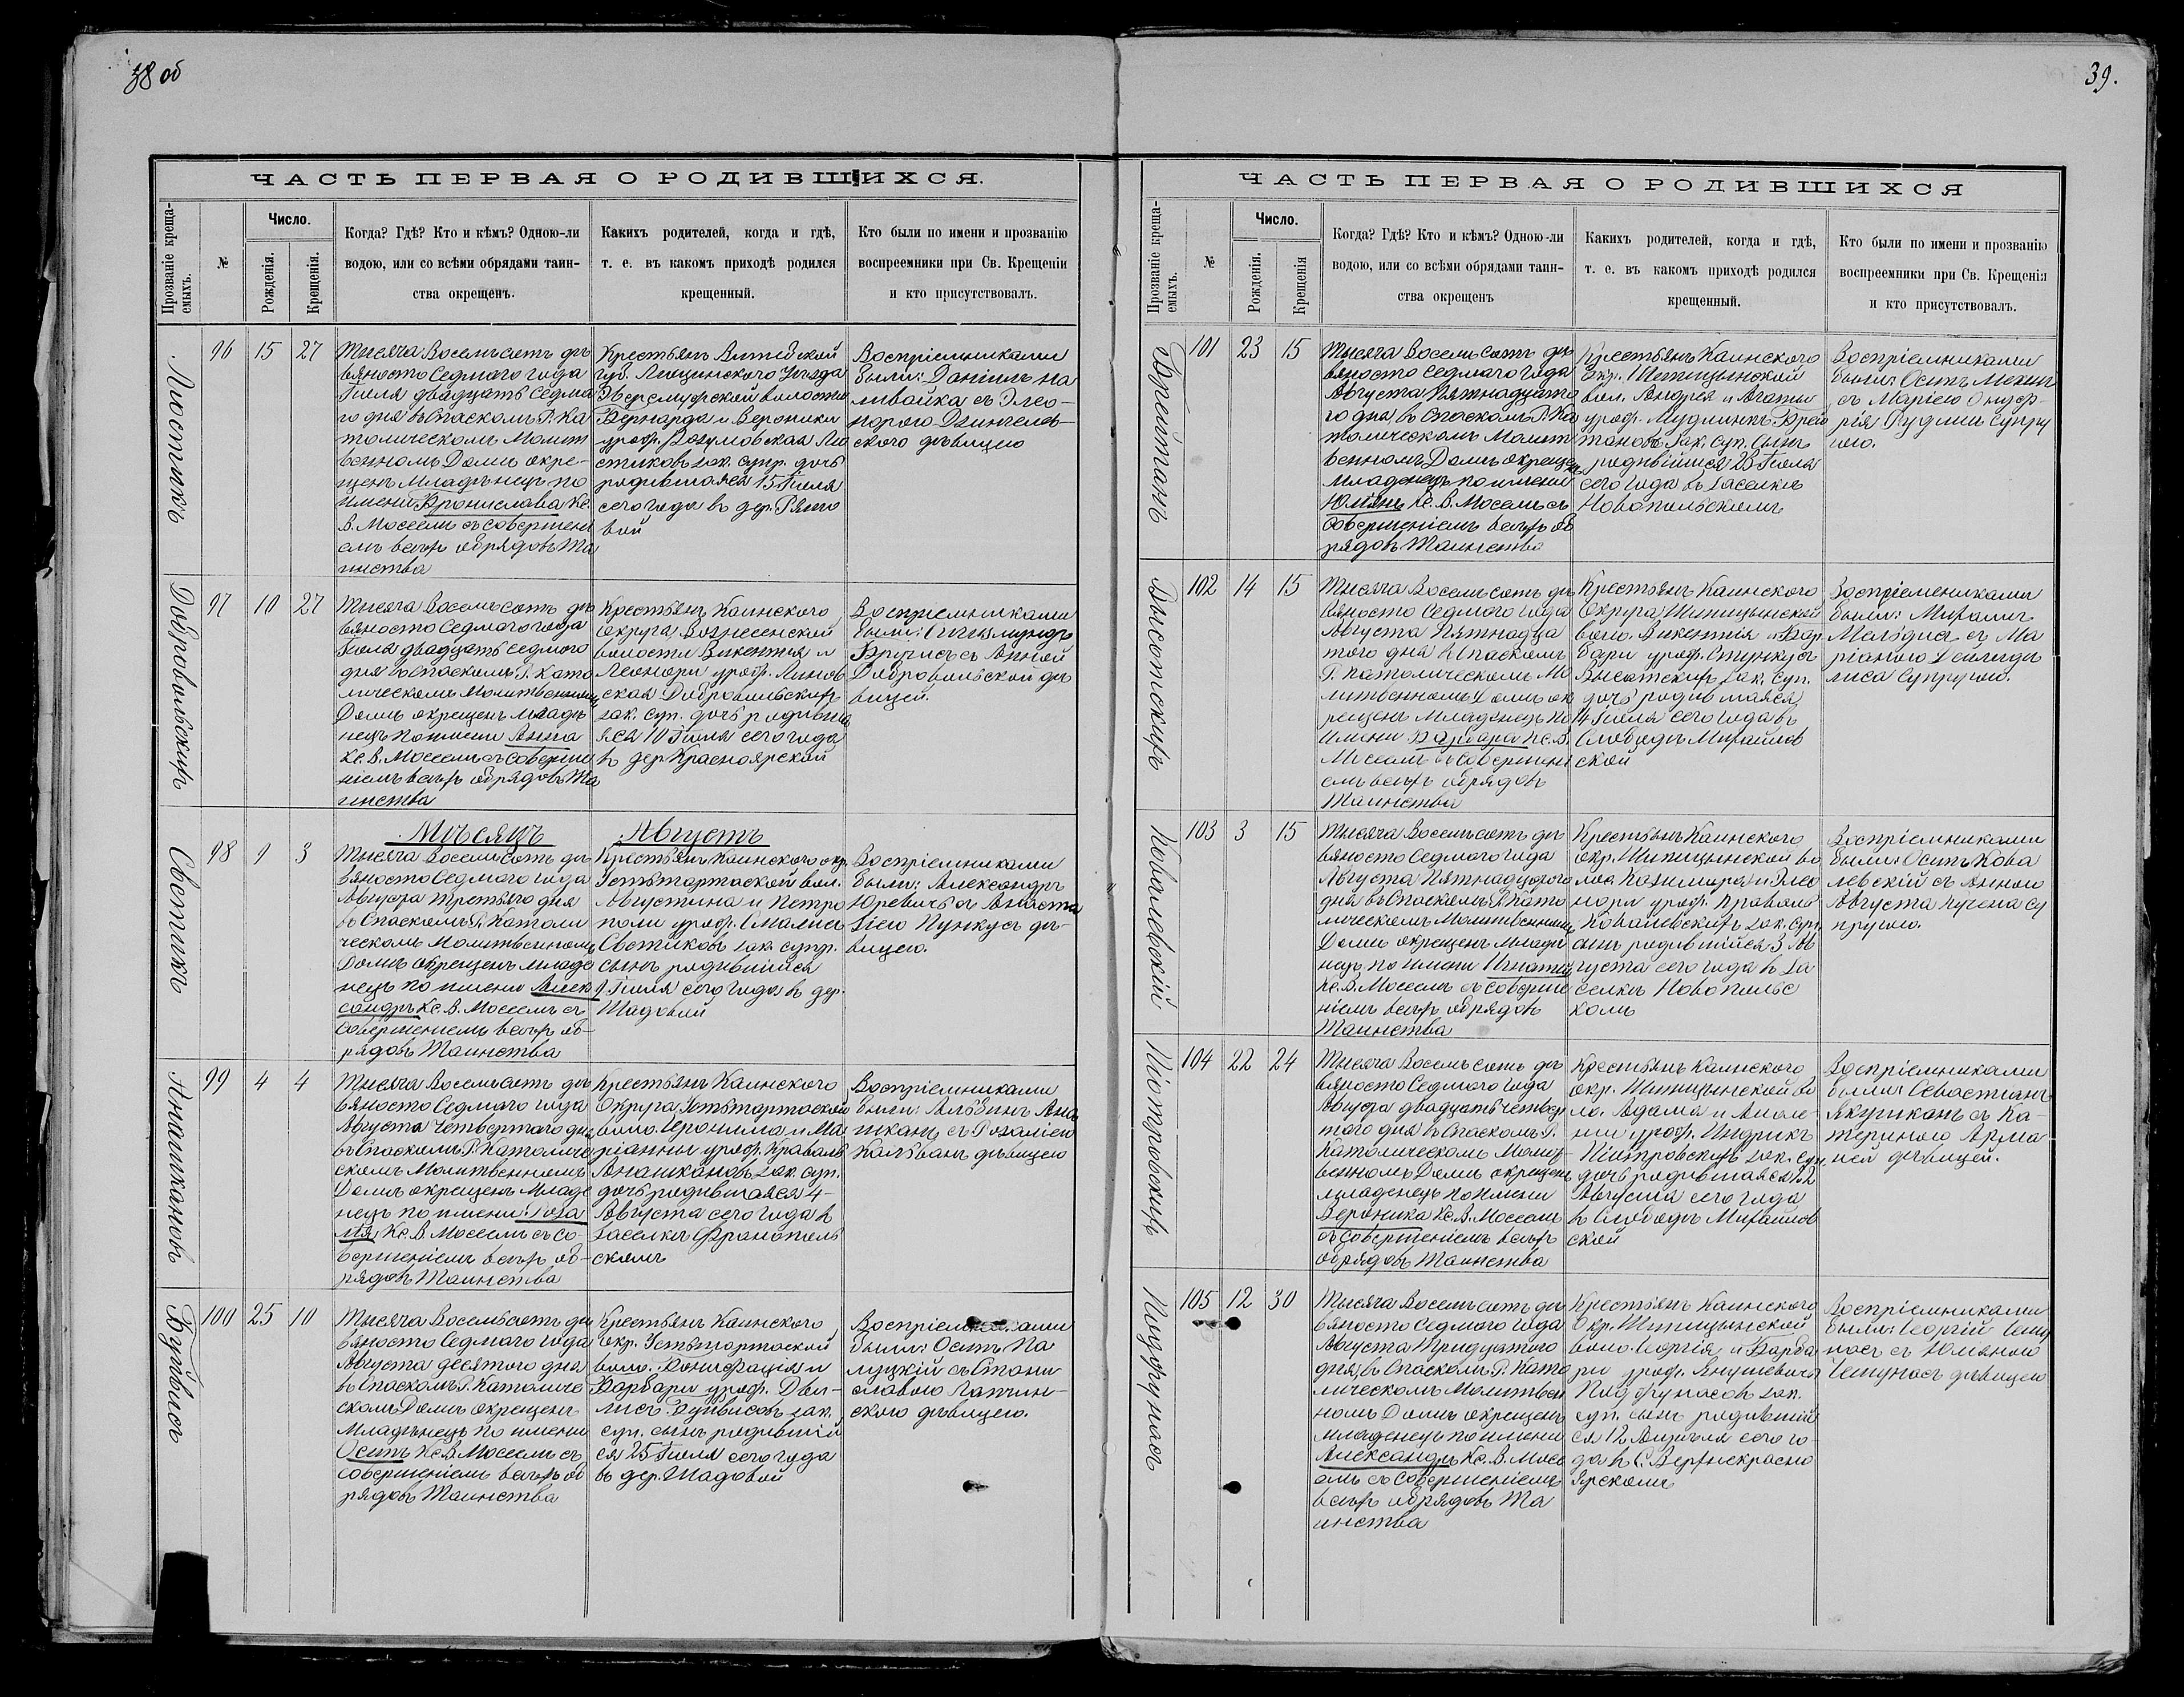 38 об
ЧАСТЬ ПЕРВАЯ О РОДИВШИХСЯ.
Прозваніе креща-
емыхъ.
№
Число.
Рожденія.
Крещенія.
Когда? Гдѣ? Кто и кѣмъ? Одною-ли
водою, или со всѣми обрядами таин-
ства окрещенъ.
Какихъ родителей, когда и гдѣ,
т. е. въ какомъ приходѣ родился
крещенный.
Кто были по имени и прозванію
воспреемники при Св. Крещеніи
и кто присутствовалъ.
Люстикъ
96 15 27
Тысяча Восемьсотъ де
вяносто Седмаго года
Іюля двадцать Седма
го дня въ Спаскомъ Р. Ка
толическомъ Молит
венномъ Домѣ окре-
щенъ Младѣнецъ по
имени Брониславa Кс.
В. Моссемъ съ совершені
емъ всѣхъ обрядовъ Та
инства
Крестьянъ Витебской
губ. Люцинскаго Уѣзда
Эверсмуйской волости
Бернарда и Вероники
урож. Розумовская Лю
стиковъ зак. супр. дочь
родившаяся 15 Іюля
сего года въ дер. Рямо
вой
Воспріемниками
были: Даніилъ На
ливайка съ Элео-
норою Дзингелев-
ского дѣвицею
Добровольскихъ
97 10 27
Тысяча Восемьсотъ де
вяносто Седмаго года
Іюля двадцать седмого
дня въ Спаскомъ Р. Като
лическомъ Молитвенномъ
Домѣ окрещенъ младѣ
нецъ по имени Анна
Кс. В. Моссемъ съ соверше
ніемъ всѣхъ обрядовъ Та
инства
Крестьянъ Каинского
Округа Вознесенской
волости Викентія и
Леонори урож. Линов
ская Добровольскихъ
зак. суп. дочь родивша
яся 10 Іюля сего года
въ дер. Красноярской
Воспріемниками
были: Сигизмундъ
Врупись съ Анной
Добровольской дѣ
вицей.
Мѣсяцъ Августъ
Свотикъ
98 9 3
Тысяча Восемьсотъ де
вяносто Седмаго года
Августа третьяго дня
въ Спаскомъ Р. Католи
ческомъ Молитвенномъ
Домѣ окрещенъ младе
нецъ по имени Алек
сандръ Кс. В. Моссемъ съ
совершеніемъ всѣхъ об-
рядовъ Таинства
Крестьянъ Каинского окр.
Устьтартаской вол.
Августина и Петро
нели урож. Смались
Свотиковъ зак. супр.
сынъ родившійся
9 Іюля сего года въ дер.
Шадовой
Воспріемниками
были: Александръ
Юревичъ съ Анаста
зіею Пункусъ дѣ-
вицею.
Анашкановъ
99 4 4
Тысяча Восемьсотъ де
вяносто Седмаго года
Августа Четвертого дня
въ Спаскомъ Р. Католиче
скомъ Молитвенномъ
Домѣ окрещенъ Младе
нецъ по имени Роза
лія Кс. В. Моссемъ съ со-
вершеніемъ всѣхъ об-
рядовъ Таинства
Крестьянъ Каинского
Округа Устьтартаской
воло. Іеронима и Ма
ріанны урож. Краваль
Анашкановъ зак. суп.
дочь родившаяся 4-
Августа сего года въ
Заселкѣ Францполь
скомъ
Воспріемниками
были: Альбинъ Ана
шканъ съ Розаліею
Кальванъ дѣвицею
Буйвисъ
100 25 10
Тысяча Восемьсотъ де
вяносто Седмаго года
Августа десятого дня
въ Спаскомъ Р. Католиче
скомъ Домѣ окрещенъ
Младѣнецъ по имени
Осипъ Кс. В. Моссемъ съ
совершеніемъ всѣхъ об
рядовъ Таинства
Крестьянъ Каинского
окр. Устьтартаской
воло. Бонифація и
Варвари урож. Двил-
лисъ Буйвисовъ зак.
суп. сынъ родившій
ся 25 Іюля сего года
въ дер. Шадовой
были: Осипъ Па
луцкій съ Стани
славою Лапчин-
ского дѣвицею.
39.
ЧАСТЬ ПЕРВАЯ О РОДИВШИХСЯ
Прозваніе креща-
емыхъ.
№
Число.
Рожденія.
Крещенія
Когда? Гдѣ? Кто и кѣмъ? Одною-ли
водою, или со всѣми обрядами таин-
ства окрещенъ
Какихъ родителей, когда и гдѣ,
т. е. въ какомъ приходѣ родился
крещенный.
Кто были по имени и прозванію
воспреемники при Св. Крещенія
и кто присутствовалъ.
Брейтанъ
101 23 15
Тысяча Восемьсотъ де
вяносто Седмаго Года
Августа Пятнадцато
го дня въ Спаскомъ Р. Ка
толическомъ Молит
венномъ Домѣ окрещенъ
Младенецъ по имени
Юліянъ Кс. В. Моссемъ съ
совершеніемъ всѣхъ об
рядовъ Таинства
Крестьянъ Каинского
Окр. Шипицынской
вол. Андрея и Агаты
урож. Мудликъ Брей
тановъ зак. суп. Сынъ
родившійся 23 Іюля
сего года въ Заселкѣ
Новопольскомъ
Воспріемниками
съ Маріею Онуф-
рія Рудлисъ супру
гою.
Высотскихъ
102 14 15
Тысяча Восемьсотъ де
вяносто Седмаго года
Августа Пятнадца
того дня въ Спаскомъ
Р. Католическомъ Мо
литвенномъ Домѣ ок
рещенъ Младенецъ по
имени Варвара Кс. В.
Моссемъ съ совершені
емъ всѣхъ обрядовъ
Таинства
Крестьянъ Каинского
Округа Шипицынской
воло. Викентія и Вар
вари урож. Стункусъ
Высотскихъ зак. суп.
дочь родившаяся
14 Іюля сего года въ
Слободѣ Михайлов
ской
Воспріемниками
были: Михаилъ
Мальдисъ съ Ма
ріаною Дейлидъ
лиса супругою.
Ковалевскій
103 3 15
Тысяча Восемьсотъ де
вяносто Седмаго года
Августа Пятнадцатого
дня въ Спаскомъ Р. Като
лическомъ Молитвенномъ
Домѣ окрещенъ младѣ
нецъ по имени Игнатій
Кс. В. Моссемъ съ соверше
ніемъ всѣхъ обрядовъ
Таинства
Крестьянъ Каинского
окр. Шипицынской во
лос. Казимира и Элео
нори урож. Краваль
Ковалевскихъ зак. суп.
сынъ родившійся 3 Ав
густа сего года въ За
селкѣ Новопольс
комъ
Воспріемниками
были: Осипъ Кова
левскій съ Анною
Августа Кучена су
пругою.
Піотровскихъ
104 22 24
Тысяча Восемьсотъ де
вяносто Седмаго года
Августа двадцать четвер
того дня въ Спаскомъ Р.
Католическомъ Молит-
венномъ Домѣ окрещенъ
младенецъ по имени
Вероника Кс. В. Моссемъ
съ совершеніемъ всѣхъ
обрядовъ Таинства
Крестьянъ Каинского
окр. Шипицынской во
ло. Адама и Аполе-
ніи урож. Индрикъ
Піотровскихъ зак. суп.
дочь родившаяся 22
Августа сего года
въ Слободѣ Михайлов
ской
Воспріемниками
были: Севастіанъ
Якушканъ съ Ка-
териною Арма
ней дѣвицей.
105 12 30
Тысяча Восемьсотъ де
вяносто Седмаго Года
Августа Тридцатого
дня, въ Спаскомъ Р. Като
лическомъ Молитвен
номъ Домѣ окрещенъ
младенецъ по имени
Александръ Кс. В. Мосс
емъ съ совершеніемъ
всѣхъ обрядовъ Та
инства
Крестьянъ Каинского
Окр. Шипицынской
воло. Георгія и Варва
ри урож. Янушевичъ
суп. сынъ родившій
ся 12 Августа сего го-
да въ С. Верхнекрасно
Ярскомъ
Воспріемниками
были: Георгій Чепу
насъ съ Юліяной
Чепунасъ дѣвицею